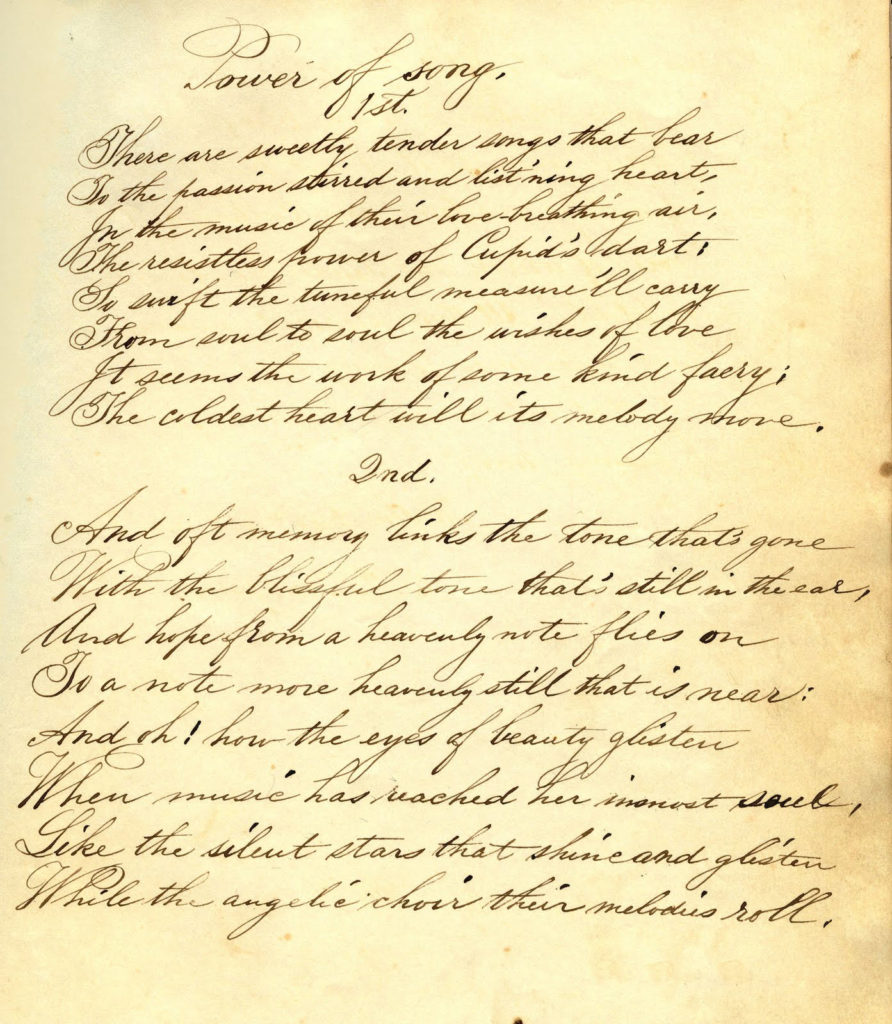 Power of song.
1st.
There are sweetly tender songs that bear
To the passion stirred and list'ning heart,
In the music of their love-breathing air,
The resistless power of Cupid's dart;
So swift the tuneful measure'll carry
From soul to soul the wishes of love
It seems the work of some kind faery;
The coldest heart will its melody move.
2nd.
And oft memory links the tone that's gone
With the blissful tone that's still in the ear,
And hope from a heavenly note flies on
To a note more heavenly still that is near:
And oh! how the eyes of beauty glisten
When music has reached her inmost soul,
Like the silent stars that shine and glisten
While the angelic choir their melodies roll.